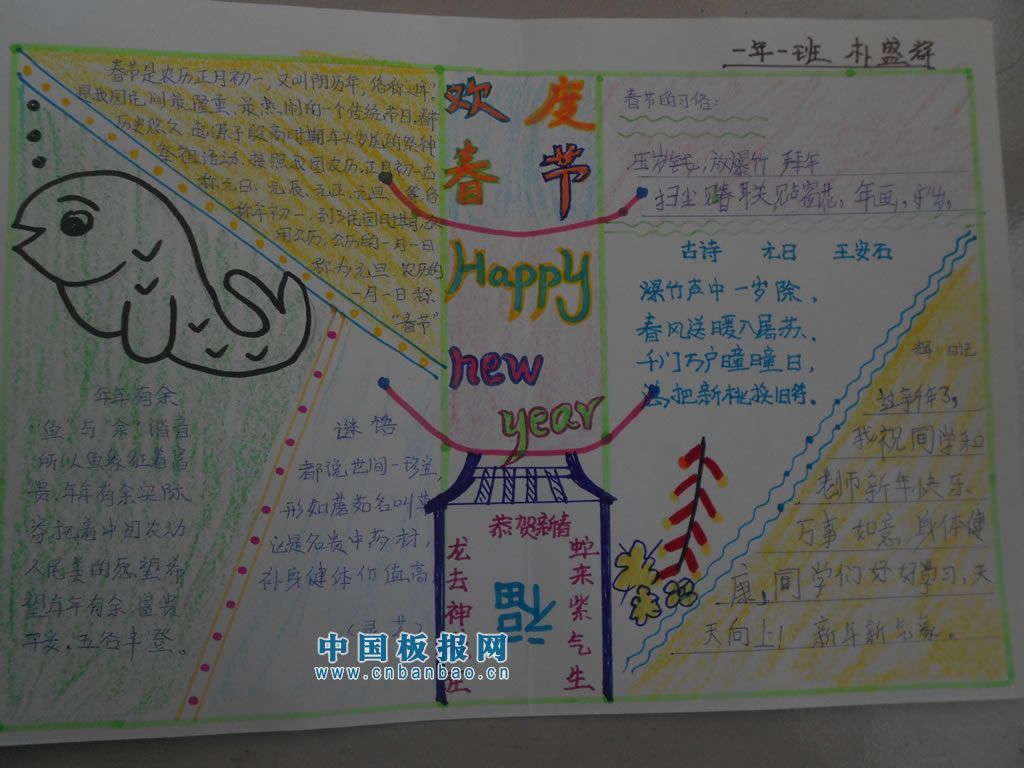 一年一班 朴盛群
春节是农历正月初一，又叫阴历年，俗称过年，
是我国民间最隆重、最热闹的一个传统节日。春节
历史悠久，起源于殷商时期年头岁尾的祭神
祭祖活动。按照我国农历，正月初一古
称元日、元辰、元正、元旦等，俗
称年初一，到了民国时期，改
用公历，公历的一月一日
称为元旦，农历的
一月一日称
“春节”
年年有余
“鱼”与“余”谐音
所以鱼象征着富
贵。年年有余实际
寄托着中国农动
人民美的愿望希
望年年有余，富贵
平安，五谷丰登。
谜语
都说世间一珍宝，
形如蘑菇名叫草
这是名贵中药材，
补身健体价值高
欢度
春节
Happy
new
year
恭贺新春
龙去神
蛇来紫气生
福
春节的习俗：
压岁钱，放爆竹 拜年
扫尘 贴春联 贴窗花，年画，守岁，
古诗 元日 王安石
爆竹声中一岁除，
春风送暖入屠苏。
千门万户曈曈日，
把新桃换旧符。
日记
过新年了，
我祝同学和
老师新年快乐
万事如意，身体健
康，同学们好好学习，天
天向上！新年新气象。
中国板报网
www.cnbanbao.cn